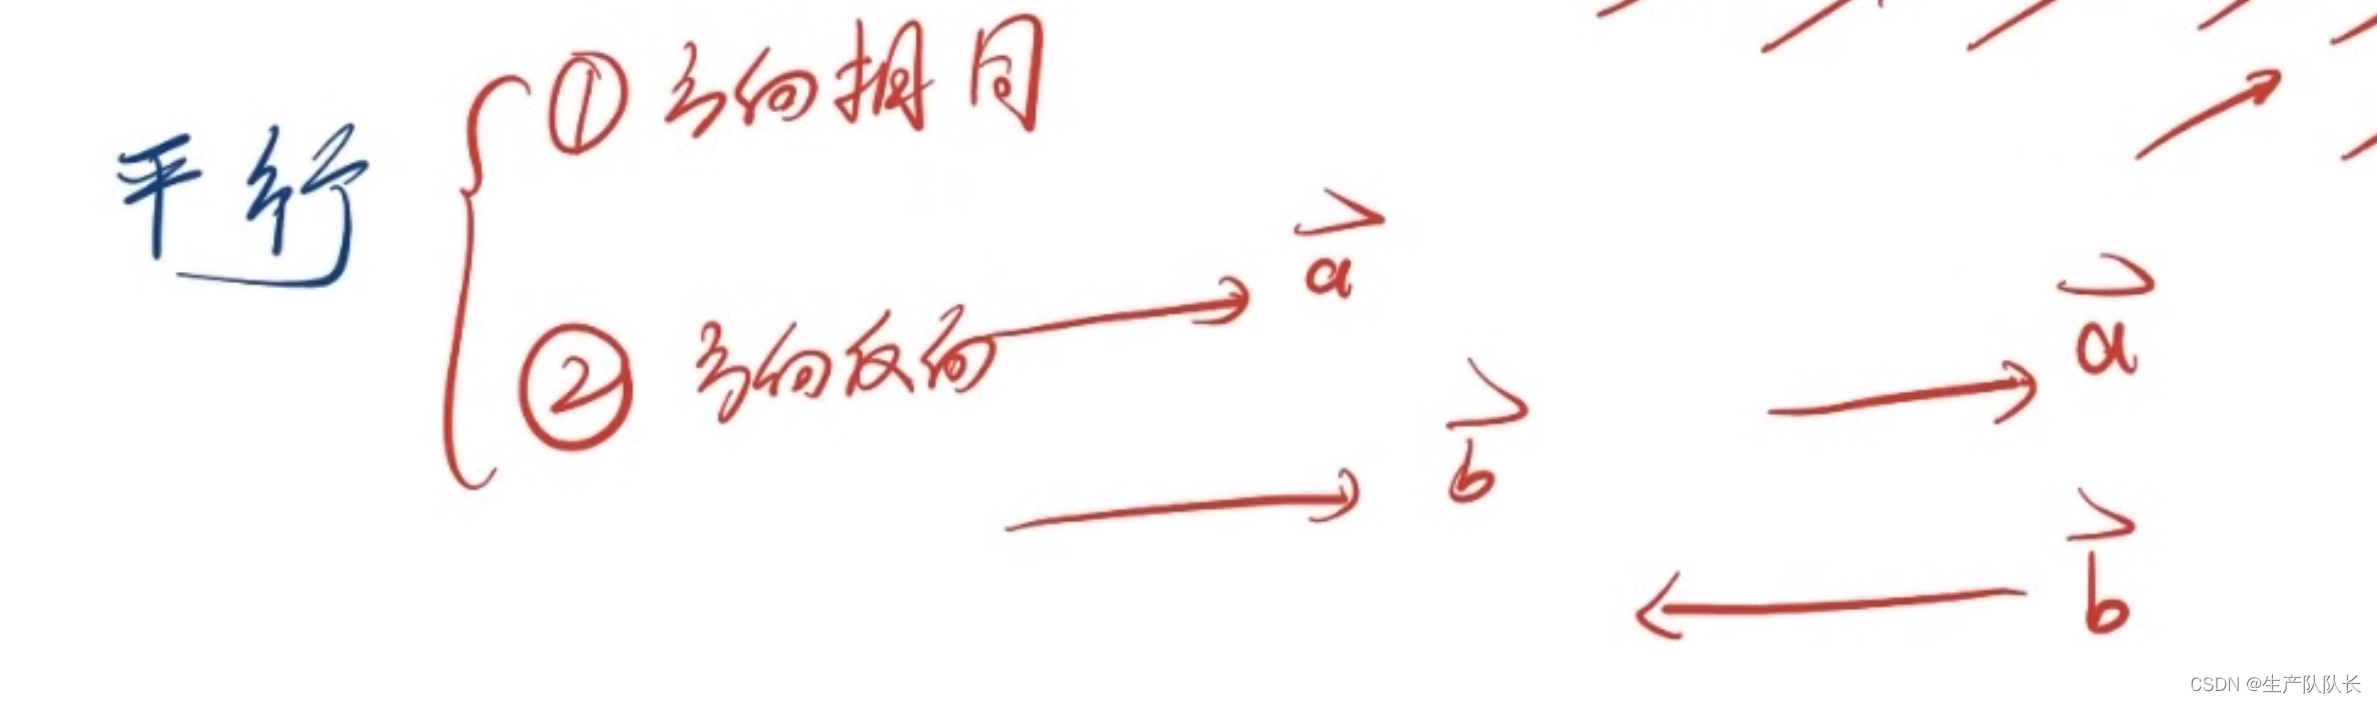 ① 方向相同
平行
a
② 方向反向
a
b
b
CSDN @生产队队长